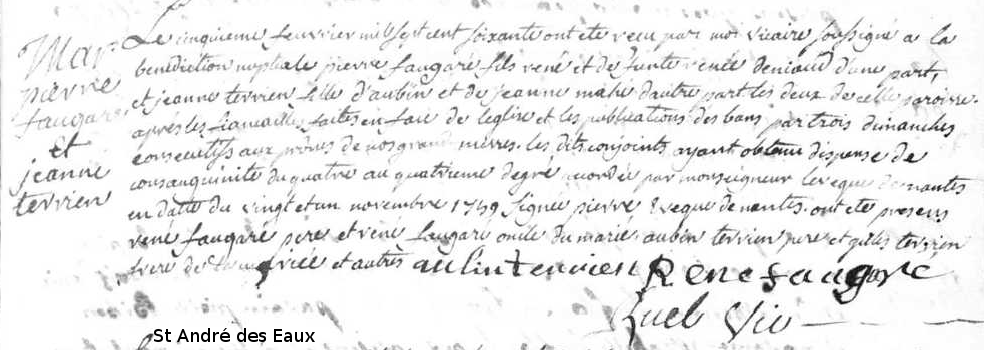 Mar
pierre
faugare
et
jeanne
terrien
Le cinquieme fevrier mil sept cent soixante ont ete recu par moi vicaire soussigné a la
benediction nuptiale pierre faugare fils rené et de funte renée deniaud d'une part,
et jeanne terrien fille d'aubin et de jeanne mahé dautre part les deux de cette paroisse.
après les fiancailles faites en face de leglise et les publications des bans par trois dimanches
consecutifs aux prônes de nos grand messes. les dits conjoints ayant obtenu dispense de
consanguinité du quatre au quatrieme degré accordée par monseigneur leveque de nantes
en datte du vingt et un novembre 1759 signee pierre Eveque de nantes. ont ete presens
rené faugare pere et rené faugare oncle du marié. aubin terrien pere et gilles terrien
frere de la mariée et autres aubin terrien Rene faugare
Vic
St André des Eaux